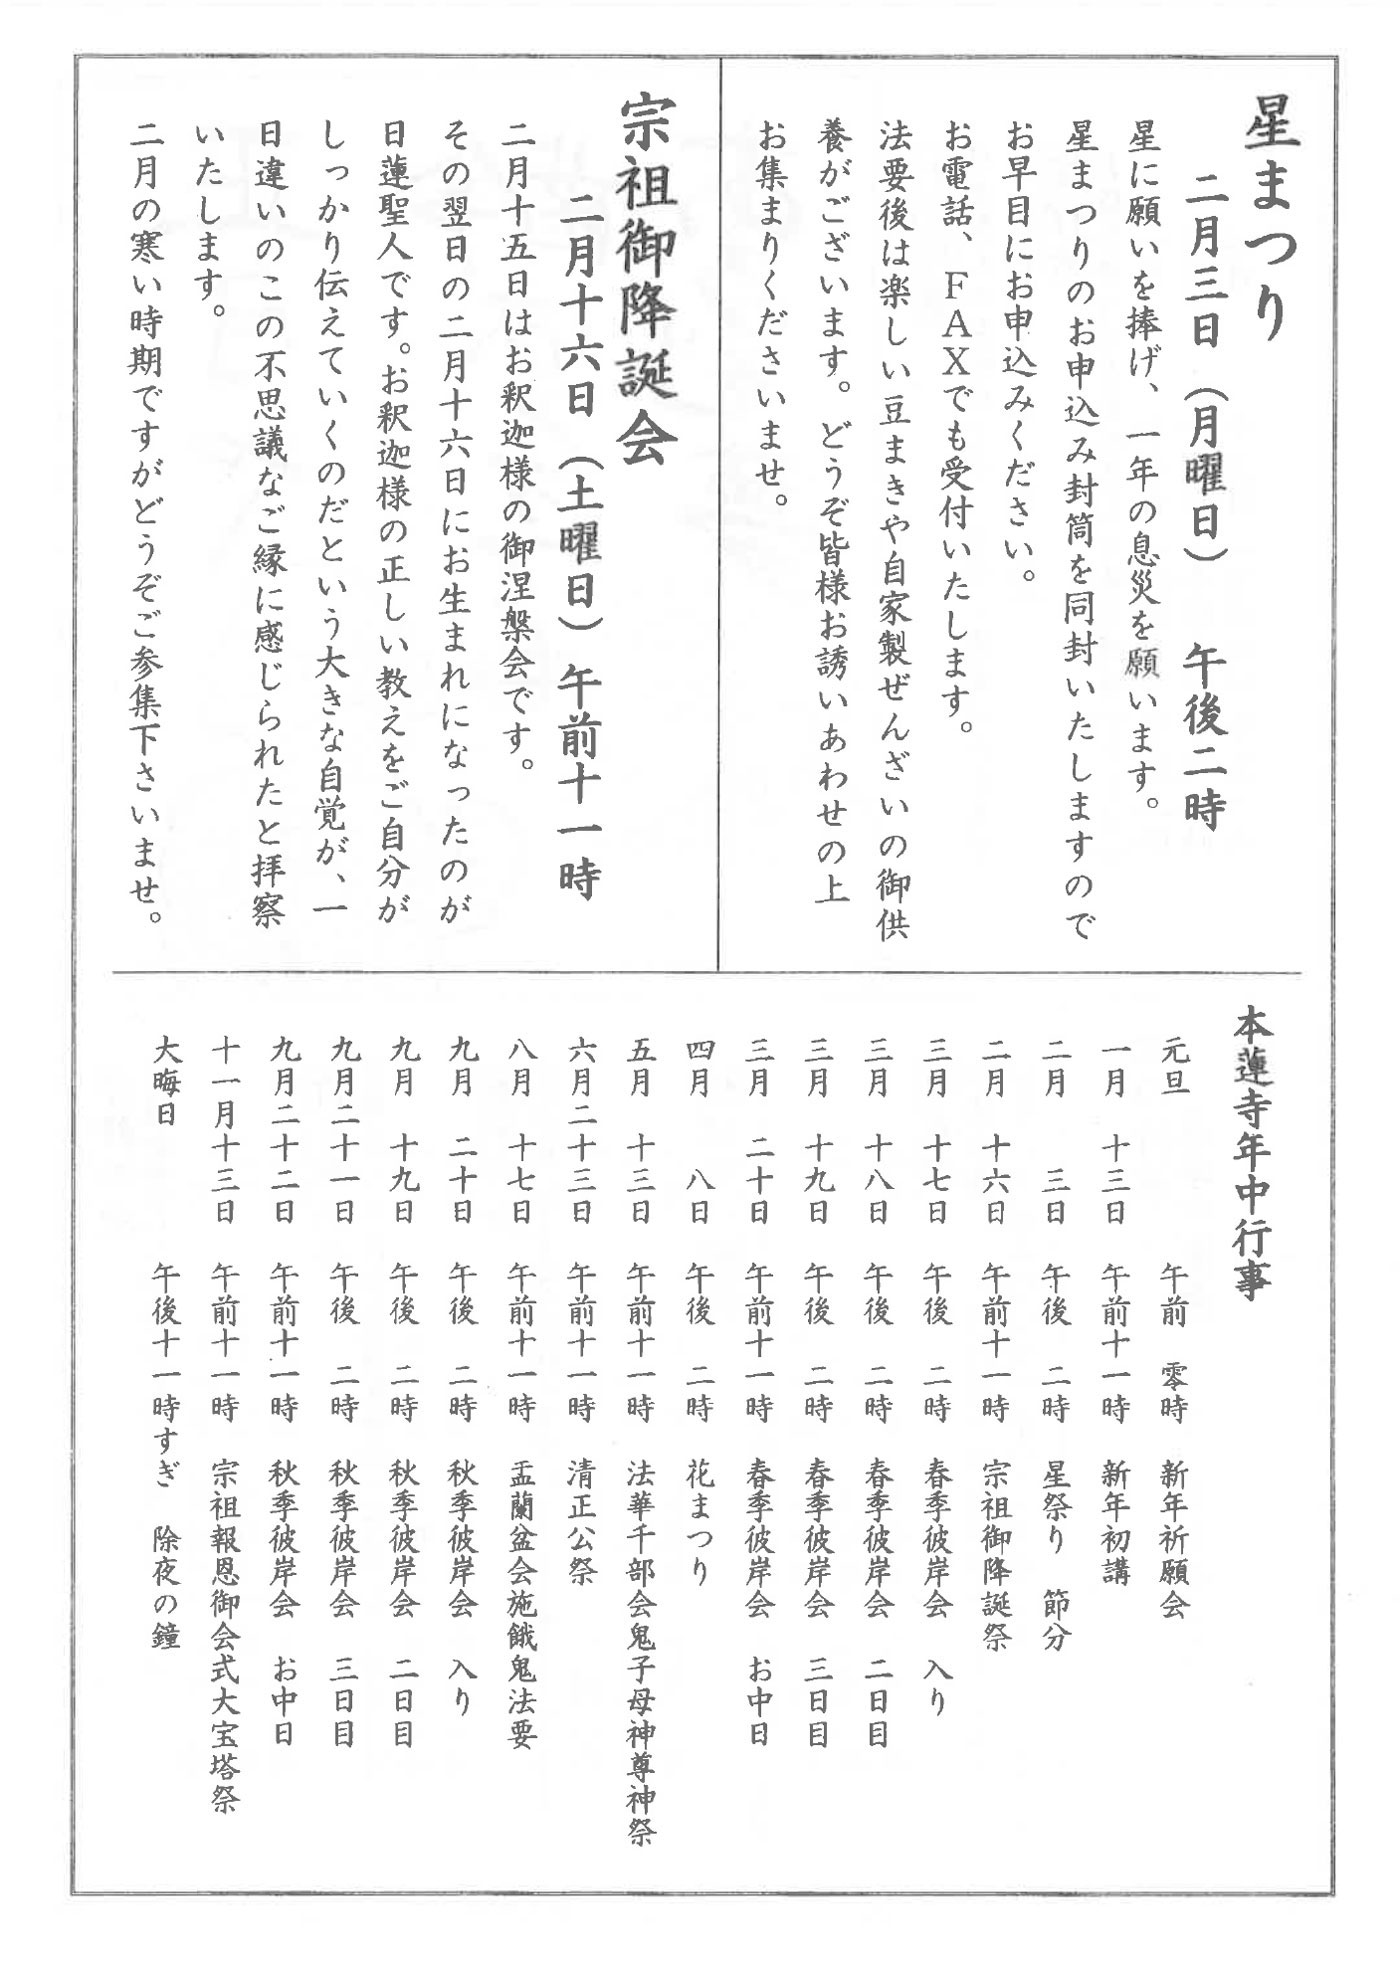 星まつり
二月三日（月曜日）　午後二時
星に願いを捧げ、一年の息災を願います。
星まつりのお申込み封筒を同封いたしますので
お早目にお申込みください。
お電話、ＦＡＸでも受付いたします。
法要後は楽しい豆まきや自家製ぜんざいの御供
養がございます。どうぞ皆様お誘いあわせの上
お集まりくださいませ。
宗祖御降誕会
二月十六日（土曜日）午前十一時
二月十五日はお釈迦様の御涅槃会です。
その翌日の二月十六日にお生まれになったのが
日蓮聖人です。お釈迦様の正しい教えをご自分が
しっかり伝えていくのだという大きな自覚が、一
日違いのこの不思議なご縁に感じられたと拝察
いたします。
二月の寒い時期ですがどうぞご参集下さいませ。
本蓮寺年中行事
元旦　午前　零時　新年祈願会
一月　十三日　午前十一時　新年初講
二月　三日　午後　二時　星祭り　節分
二月　十六日　午前十一時　宗祖御降誕祭
三月　十七日　午後　二時　春季彼岸会　入り
三月　十八日　午後　二時　春季彼岸会　二日目
三月　十九日　午後　二時　春季彼岸会　三日目
三月　二十日　午前十一時　春季彼岸会　お中日
四月　八日　午後　二時　花まつり
五月　十三日　午前十一時　法華千部会鬼子母神尊神祭
六月二十三日　午前十一時　清正公祭
八月　十七日　午前十一時　盂蘭盆会施餓鬼法要
九月　二十日　午後　二時　秋季彼岸会　入り
九月　十九日　午後　二時　秋季彼岸会　二日目
九月二十一日　午後　二時　秋季彼岸会　三日目
九月二十二日　午前十一時　秋季彼岸会　お中日
十一月十三日　午前十一時　宗祖報恩御会式大宝塔祭
大晦日　午後十一時すぎ　除夜の鐘